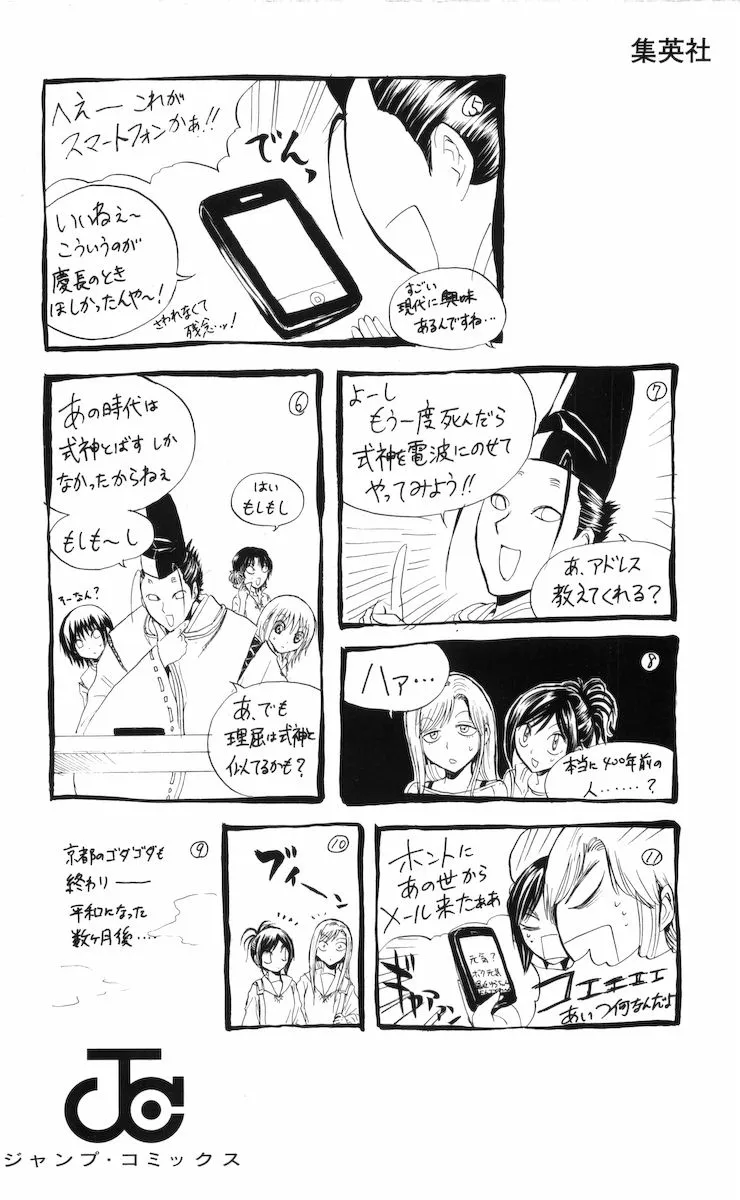 集英社
⑤
へえー これが
スマートフォンかぁ!!
でんっ
いいねぇ〜
こういうのが
慶長のとき
ほしかったんや〜!
さわれなくて
残念…ッ!
すごい
現代に興味
あるんですね…
⑥
あの時代は
式神とばすしか
なかったからねぇ
もしも〜し
はい
もしもし
そーなん?
あ、でも
理屈は式神と
似てるかも?
⑦
よーし
もう一度死んだら
式神を電波にのせて
やってみよう!!
あ、アドレス
教えてくれる?
⑧
ハァ…
本当に400年前の
人……?
⑨
京都のゴタゴタも
終わり――
平和になった
数ヶ月後‥‥
⑩
ブィーン
⑪
ホントに
あの世から
メール来たぁぁ
元気?
ボク元気
ぎゃアァン
コエエエエ
あいつ何なんだよ
ジャンプ・コミックス